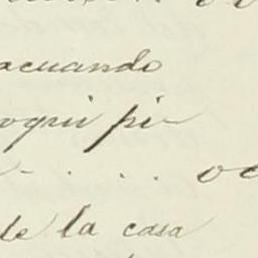 acuando
oqui pi-
- . . . oc
de la casa